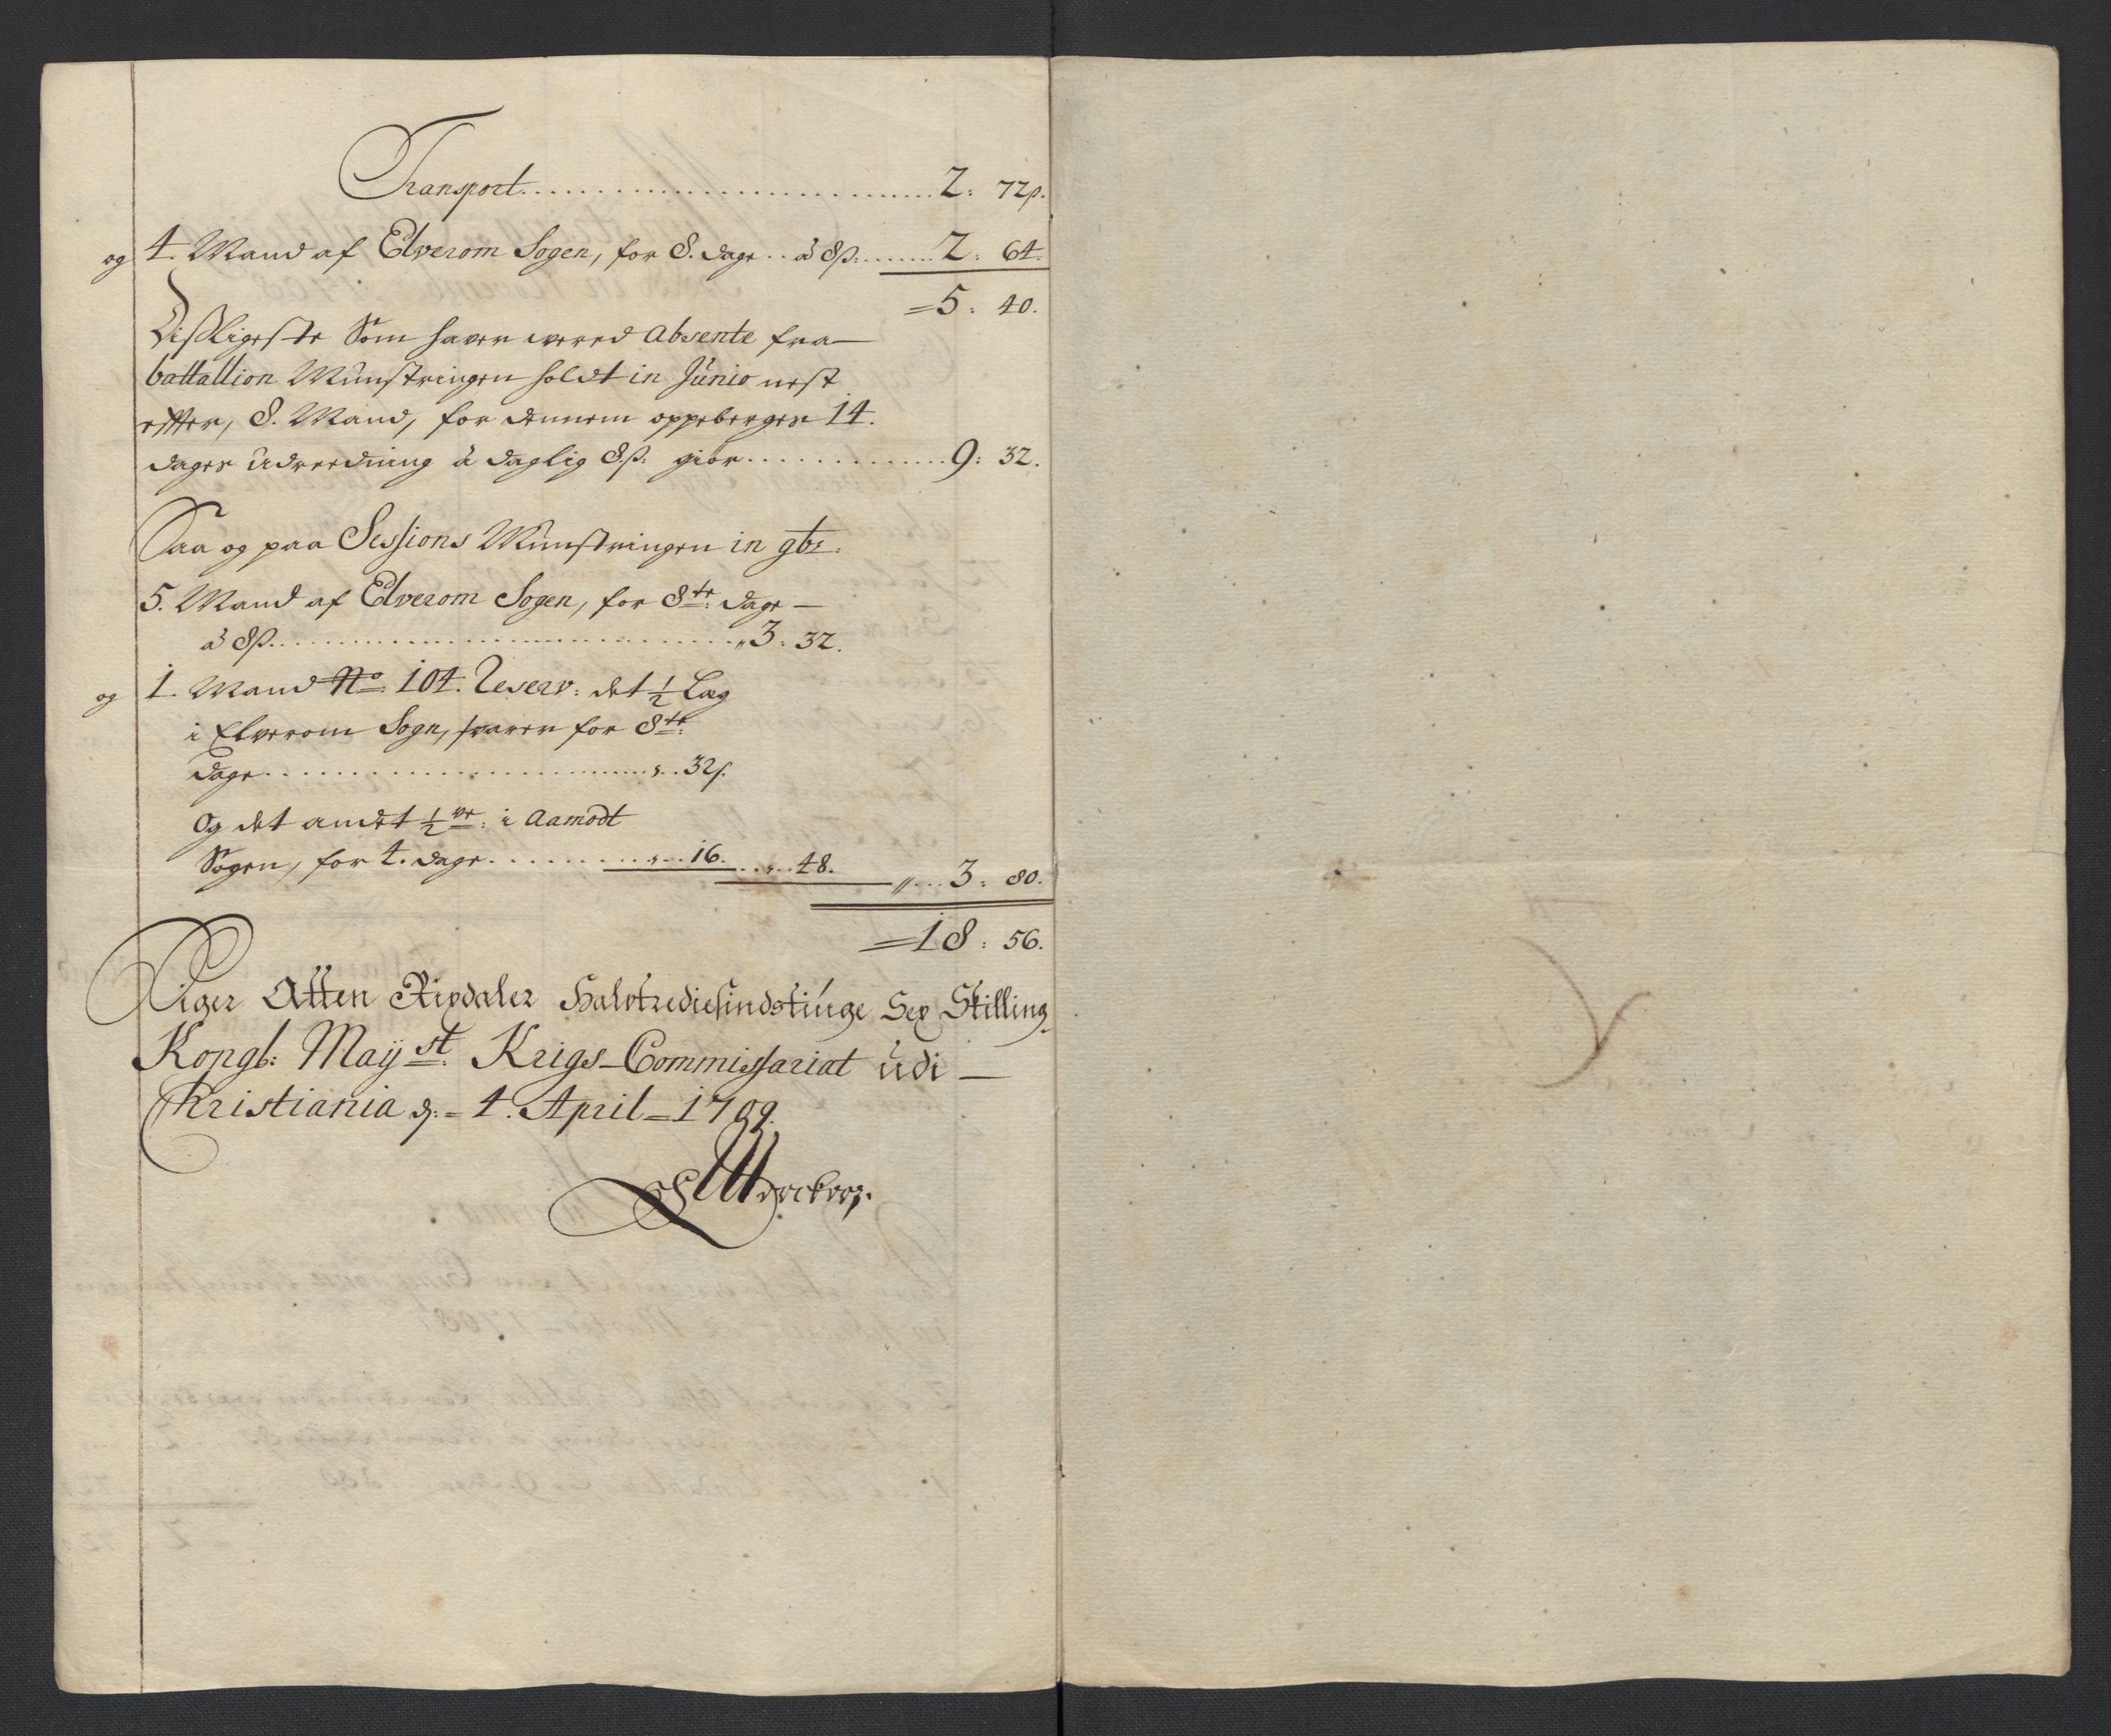 Transport ........ 2: 72ß.
og 4. Mand af Elverom Sogen, for 8. dage .. à 8ß: ........ 2: 64.
=5: 40.
Disligeste Som hafver wered absente fra
battallion Münstringen holdt in Junio nest
effter, 8. Mand, for dennem oppeberges 14.
dages Udreedning à daglig 8ß: giör ........ 9: 32.
Saa og paa Sessions Münstringen in 9br:
5. Mand af Elverom Sogen, for 8te: dage —
à 8ß. ........ „3: 32.
og 1. Mand No: 104. Reserv: det ½ Læg
i Elverom Sogn, svarer for 8te:
dage ........ „.. 32ß.
Og det andet ½ve: i Aamodt
Sogen, for 4. dage ........ „... 16. ..„.. 48. „... 3: 80.
=18: 56.
Siger Atten Rixdaler Halvtrediesindstiuge Sex Skilling
Kongl: Mayst: Krigs-Commissariat udi —
Christiania d: = 4. April = 1709.